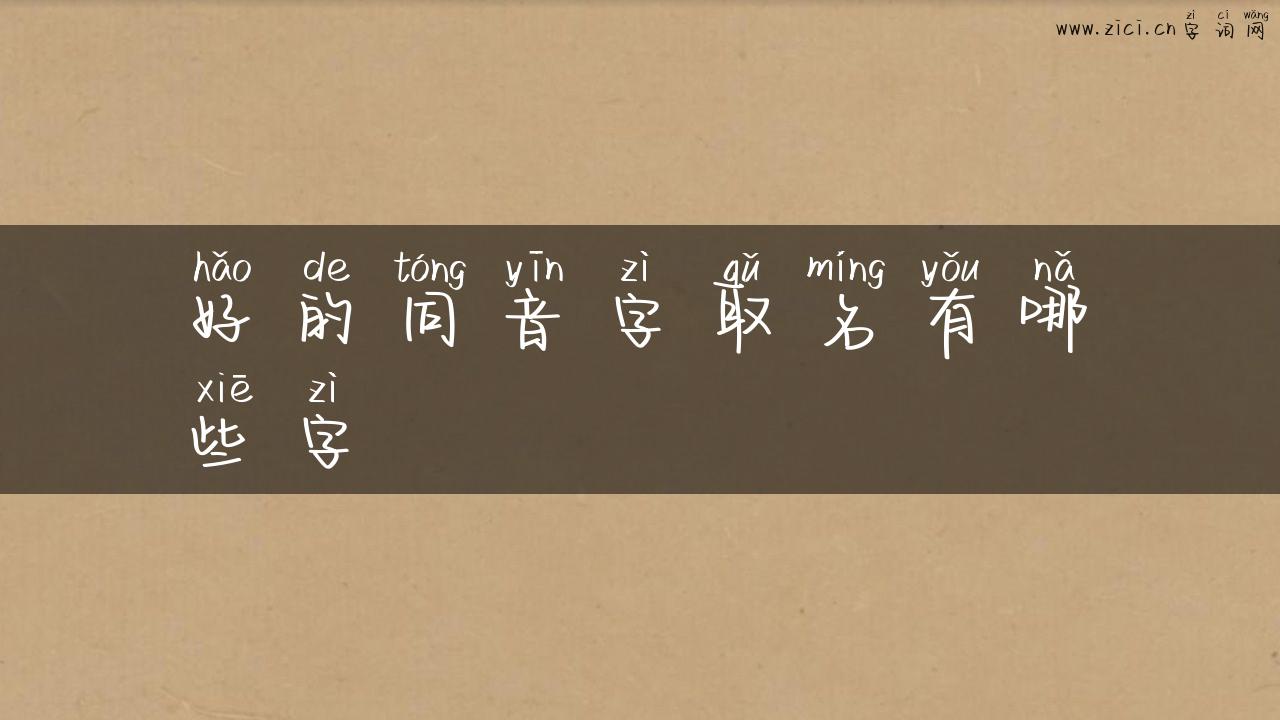 www.zici.cn 字词网
zì cí wǎng
hǎo de tóng yīn zì qǔ míng yǒu nǎ
好的同音字取名有哪
xiē zì
些字